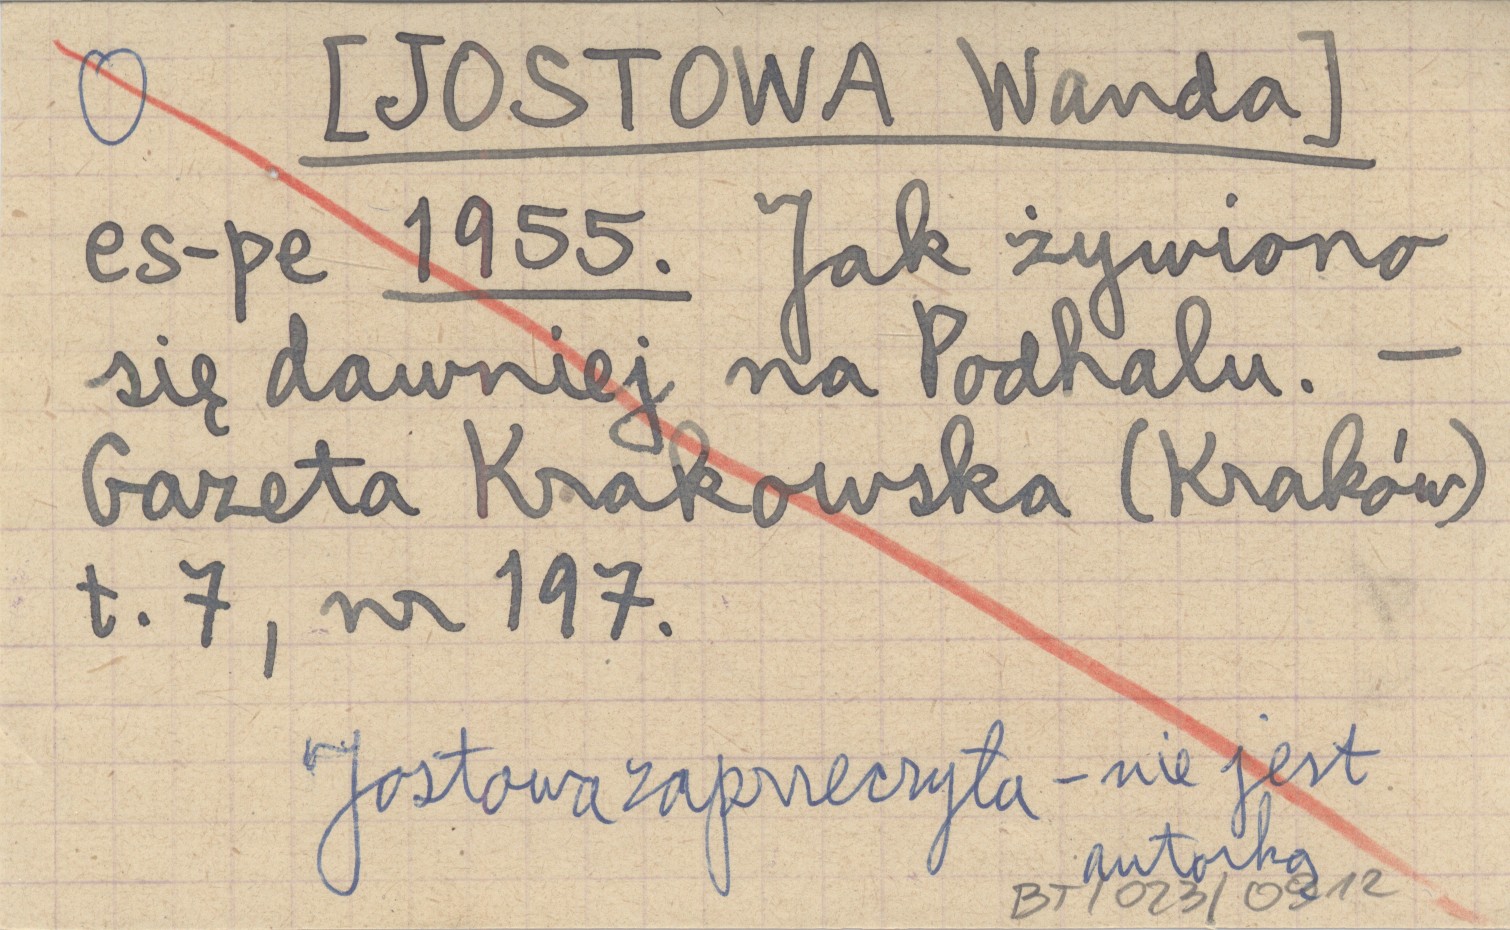 [JOSTOWA Wanda]
es-pe 1955. Jak żywiono
się dawniej na Podhalu. —
Gazeta Krakowska (Kraków)
t. 7, nr 197.
Jostowa zaprzeczyła – nie jest
autorką
BT/023/0912